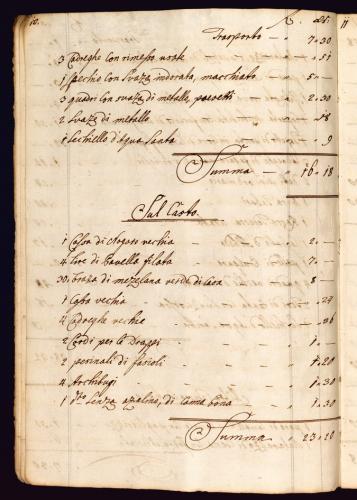 10. L. 25. 11
Trasporto — 7 " 30
3 Cadreghe con rimesso noste — " 51
1 Spechio con Svaza indorata, machiato — 5 " —
3 quadri con svaza di metallo, — 2 " 30
2 Svaze di metallo — " 18
1 Sechiello d'Aqua Santa — " 9
Summa — " 16 " 18
Sul Casto.
1 Cassa di Nogara vechia " 2 " —
4 Lire di Bavella filata " 7 " —
30. braza di mezelana verde di Casa " 8
1 Cassa vechia " — " 24
4 Cadreghe vechie " — " 36
2 Cordi per li Drappi " 1 " —
2 perinali di fasioli " 1 " 20
4 Archibugi " 1 " 30
1 Senza azalino, di Cana bona " 1 " 30
Summa " 23 " 20